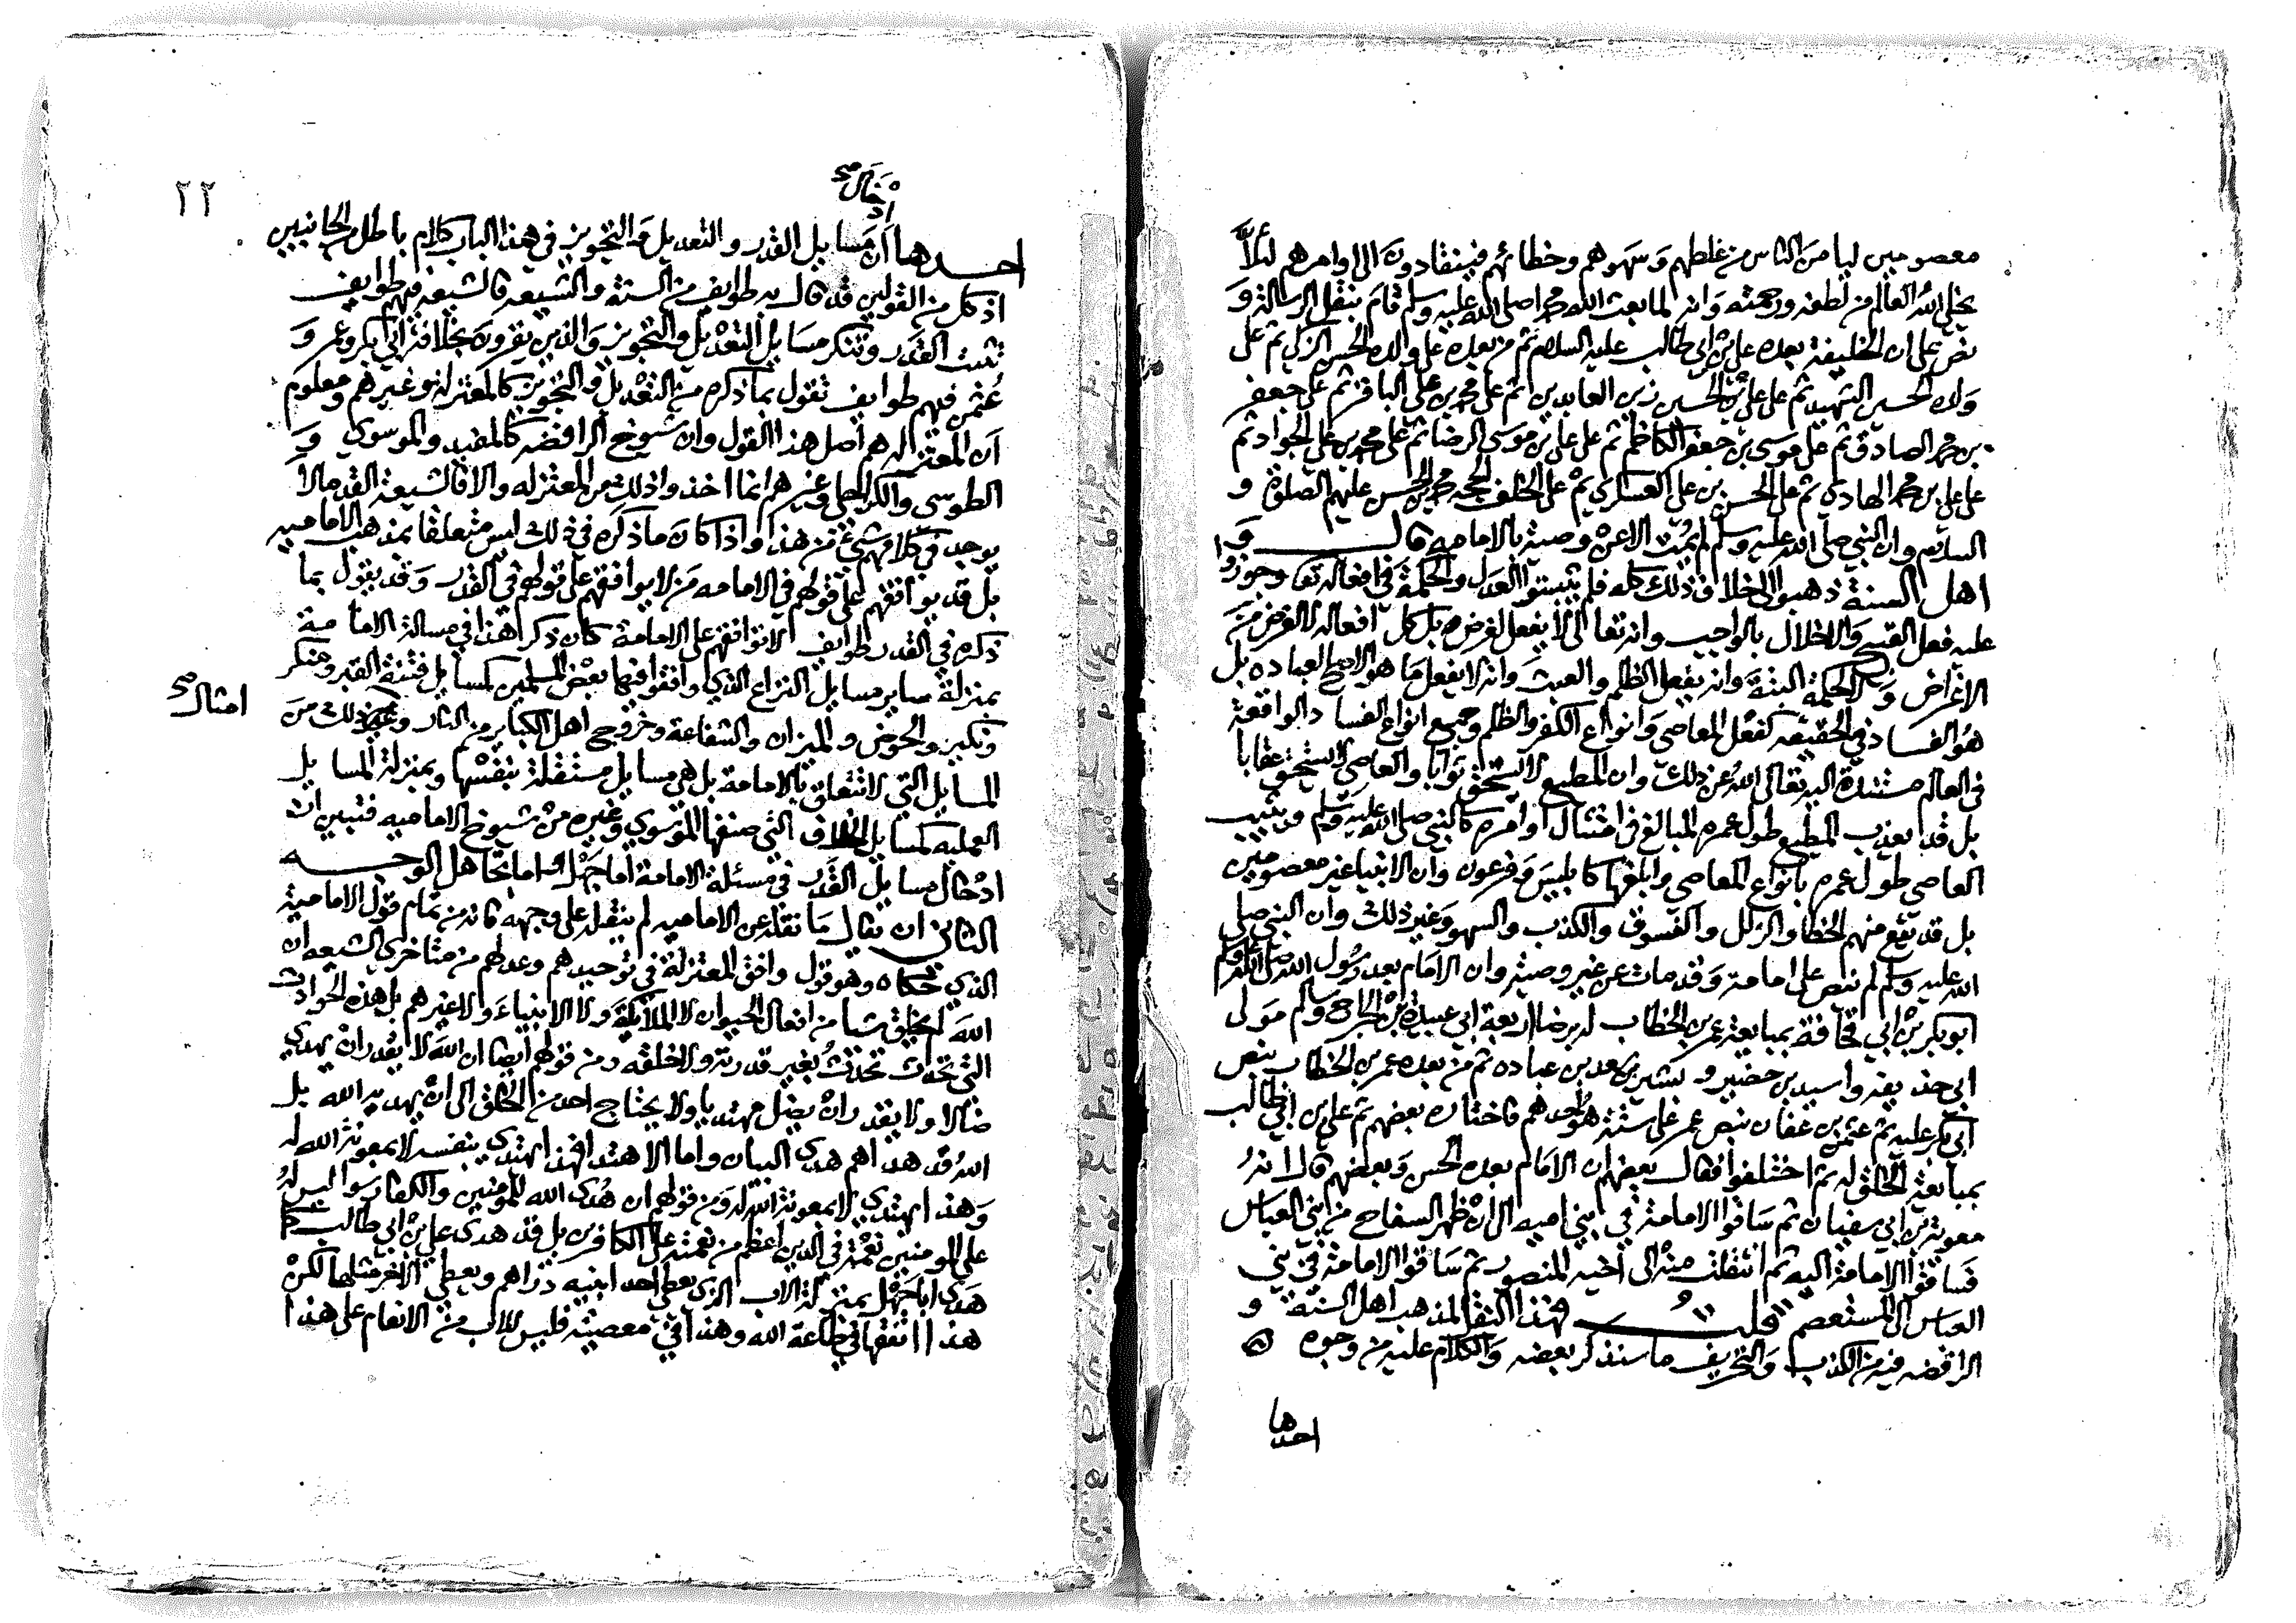 معصومين ليامن الناس من غلطهم وسهوهم وخطائهم فينقادون الى اوامرهم لئلا
يخلي الله العالم من لطفه ورحمته وانه لما بعث الله محمدا صلى الله عليه وسلم قام بنقل الرسالة و
نص على ان الخليفة بعده علي بن ابي طالب عليه السلام ثم من بعده على ولده الحسن الزكي ثم على
ولده الحسين الشهيد ثم على علي بن الحسين زين العابدين ثم على محمد بن علي الباقر ثم على جعفر
بن محمد الصادق ثم على موسى بن جعفر الكاظم ثم على علي بن موسى الرضا ثم على محمد بن علي الجواد ثم
على علي بن محمد الهادي ثم على الحسن بن علي العسكري ثم على الخلف الحجه محمد بن الحسن عليهم الصلوة و
السلام وان النبي صلى الله عليه وسلم لم يمت الا عن وصية بالامامه قال و
اهل السنة ذهبوا الى خلاف ذلك كله فلم يثبتوا العدل والحكمة في افعاله تعا وجوزوا
عليه فعل القبيح والاخلال بالواجب وانه تعالى لا يفعل لغرض بل كل افعاله لا لغرض من
الاغراض ولا لحكمة البتة وانه يفعل الظلم والعبث وانه لا يفعل ما هو الاصلح لعباده بل
هو الفساد في الحقيقه كفعل المعاصي وانواع الكفر والظلم وجميع انواع الفساد الواقعة
في العالم مستندة اليه تعالى الله عن ذلك وان المطيع لا يستحق ثوابا والعاصي لا يستحق عقابا
بل قد يعذب المطيع طول عمره المبالغ في امتثال اوامره كالنبي صلى الله عليه وسلم ويثيب
العاصي طول عمره بانواع المعاصي وابلغها كابليس وفرعون وان الانبيا غير معصومين
بل قد يقع منهم الخطا والزلل والفسوق والكذب والسهو وغير ذلك وان النبي صلى
الله عليه وسلم لم ينص على امامة وقد مات عن غير وصية وان الامام بعد رسول الله صلى الله عليه وسلم
ابو بكر بن ابي قحافة بمبايعة عمر بن الخطاب له برضا اربعة ابي عبيدة بن الجراح وسالم مولى
ابي حذيفه واسيد بن حضير وبشير بن سعد بن عباده ثم من بعده عمر بن الخطاب بنص
ابي بكر عليه ثم عثمن بن عفان بنص عمر على ستة هو احدهم فاختاره بعضهم ثم علي بن ابي طالب
بمبايعة الخلق له ثم اختلفوا فقال بعضهم ان الامام بعده الحسن وبعضهم قال انه
معوية بن ابي سفيان ثم ساقوا الامامة في بني اميه الى ان ظهر السفاح من بني العباس
فساقوا الامامة اليه ثم انتقلت منه الى اخيه المنصور ثم ساقوا الامامة في بني
العباس الى المستعصم قلت فهذا النقل لمذهب اهل السنة و
الرافضه فيه من الكذب والتحريف ما سنذكر بعضه والكلام عليه من وجوه
احدها
٢٢
ادخال صح
احدها ان مسايل القدر والتعديل والتجويز في هذا الباب كلام باطل من الجانبين
اذ كل من القولين قد قال به طوايف من السنة والشيعه فالشيعه فيهم طوايف
تثبت القدر وتنكر مسايل التعديل والتجويز والذين يقرون بخلافة ابي بكر وعمر و
عثمن فيهم طوايف تقول بما ذكره من التعديل والتجويز كالمعتزله وغيرهم ومعلوم
ان المعتزله هم اصل هذا القول وان شيوخ الرافضه كالمفيد والموسوي و
الطوسي والكراجكي وغيرهم انما اخذوا ذلك من المعتزله والا فالشيعة القدما لا
يوجد في كلامهم شيء من هذا واذا كان ما ذكره في ذلك ليس متعلقا بمذهب الاماميه
بل قد يوافقهم على قولهم في الامامه من لا يوافقهم على قولهم في القدر وقد يقول بما
ذكره في القدر طوايف لا توافقهم على الامامة كان ذكر هذا في مسالة الامامة
بمنزلة ساير مسايل النزاع الذي وافقوا فيها بعض المسلمين كمسايل فتنة القبر ومنكر
ونكير والحوض والميزان والشفاعة وخروج اهل الكباير من النار وغير ذلك من
امثال صح
المسايل التي لا تتعلق بالامامة بل هي مسايل مستقلة بنفسها وبمنزلة المسايل
العمليه كمسايل الخلاف التي صنفها الموسوي وغيره من شيوخ الاماميه فتبين ان
ادخال مسايل القدر في مسئلة الامامة اما جهل واما تجاهل الوجه
الثاني ان يقال ما نقله عن الاماميه لم ينقله على وجهه فانه من تمام قول الامامية
الذي حكاه وهو قول وافق المعتزلة في توحيدهم وعدلهم من متاخري الشيعه ان
الله لم يخلق شيا من افعال الحيوان لا الملائكة ولا الانبياء ولا غيرهم بل هذه الحوادث
التي تحدث تحدث بغير قدرته ولا خلقه ومن قولهم ايضا ان الله لا يقدر ان يهدي
ضالا ولا يقدر ان يضل مهتديا ولا يحتاج احد من الخلق الى ان يهديه الله بل
الله قد هداهم هدى البيان واما الاهتدا فهذا يهتدي بنفسه لا بمعونة الله له
وهذا يهتدي لا بمعونة الله له ومن قولهم ان هدى الله للمومنين والكفار سوا ليس له
على المومنين نعمة في الدين اعظم من نعمته على الكافرين بل قد هدى علي بن ابي طالب كما
هدى ابا جهل بمنزلة الاب الذي يعطي احد ابنيه دراهم ويعطي الاخر مثلها لكن
هذا انفقها في طاعة الله وهذا في معصيته فليس للاب من الانعام على هذا